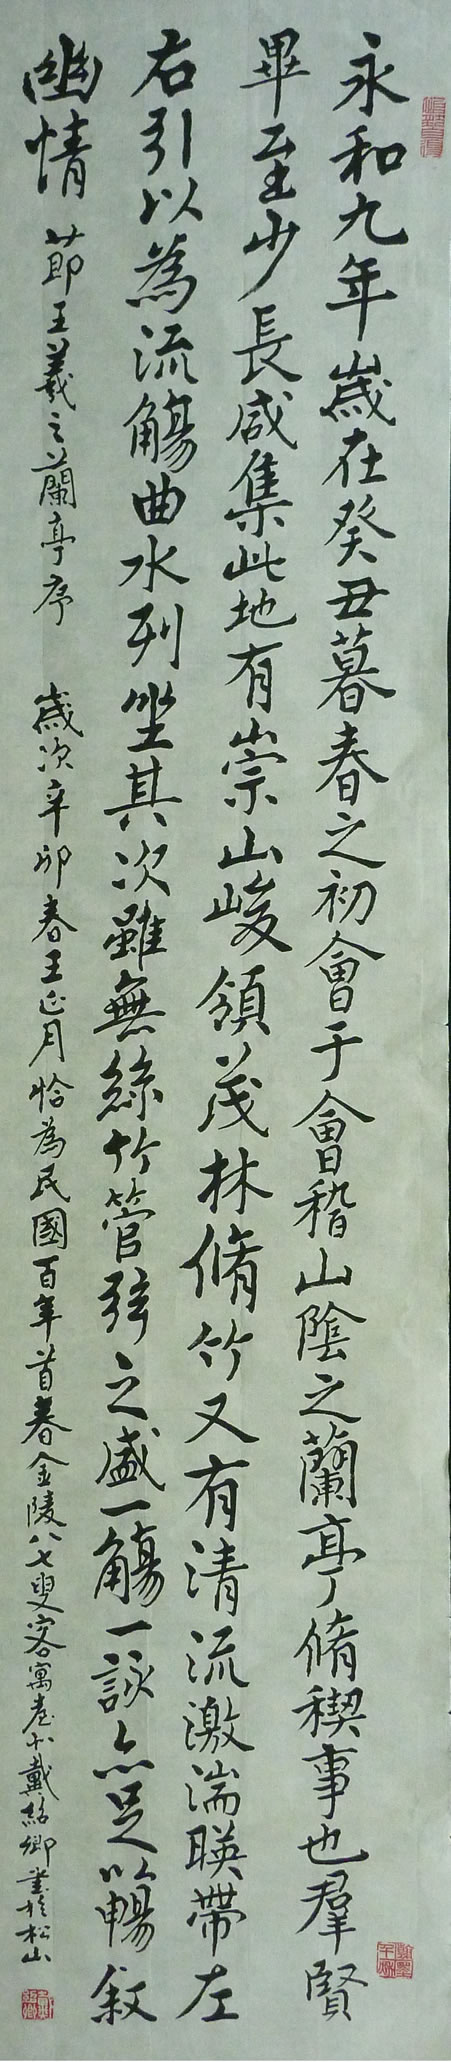 永和九年歲在癸丑暮春之初會于會稽山陰之蘭亭脩稧事也羣賢
畢至少長咸集此地有崇山峻領茂林脩竹又有清流激湍暎帶左
右引以為流觴曲水列坐其次雖無絲竹管弦之盛一觴一詠亦足以暢敘
幽情 節王羲之蘭亭序 歲次辛卯春王正月恰為民國百年首春金陵八七叟客寓臺北戴紹卿書於松山